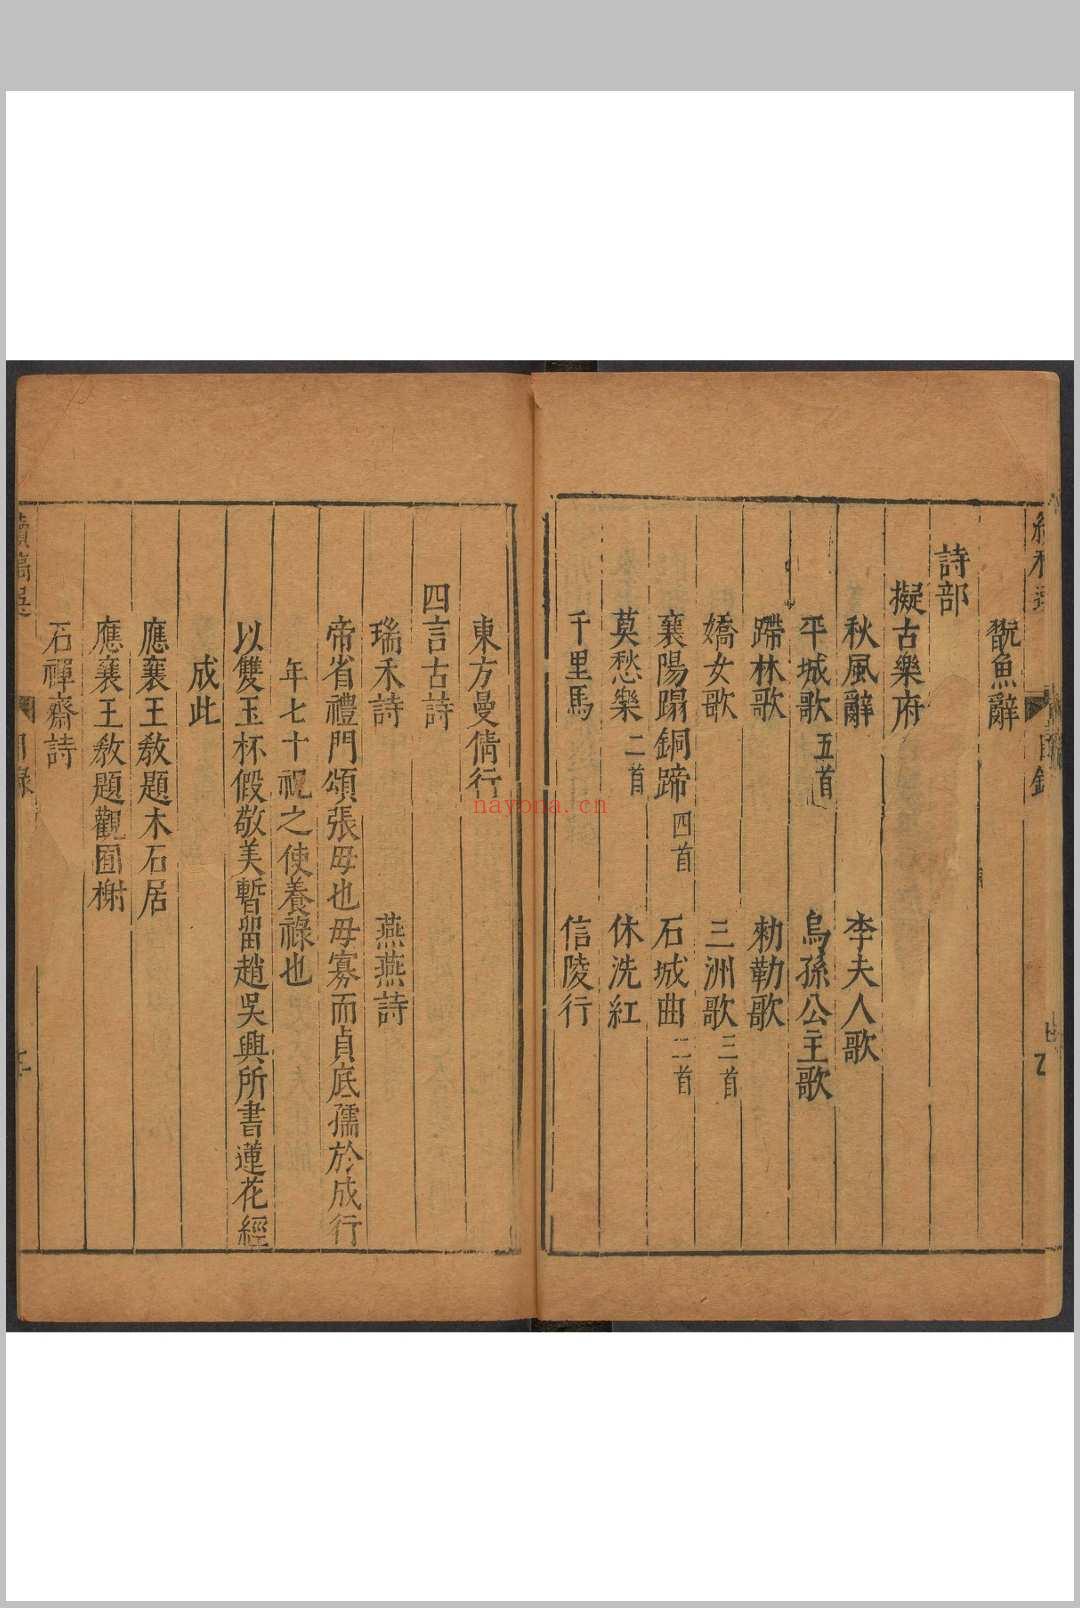 翫魚辭
詩部
擬古樂府
秋風辭 李夫人歌
平城歌 五首 烏孫公主歌
蹛林歌 勑勒歌
嬌女歌 三洲歌 三首
襄陽蹋銅蹄 四首 石城曲 二首
莫愁樂 二首 休洗紅
千里馬 信陵行
東方曼倩行
四言古詩
瑞禾詩 燕燕詩
帝省禮門頌張母也母寡而貞底孺於成行
年七十祝之使養祿也
以雙玉杯假敬美暫留趙吳興所書蓮花經
成此
應襄王教題木石居
應襄王教題觀囿榭
石禪齋詩
nayona.cn